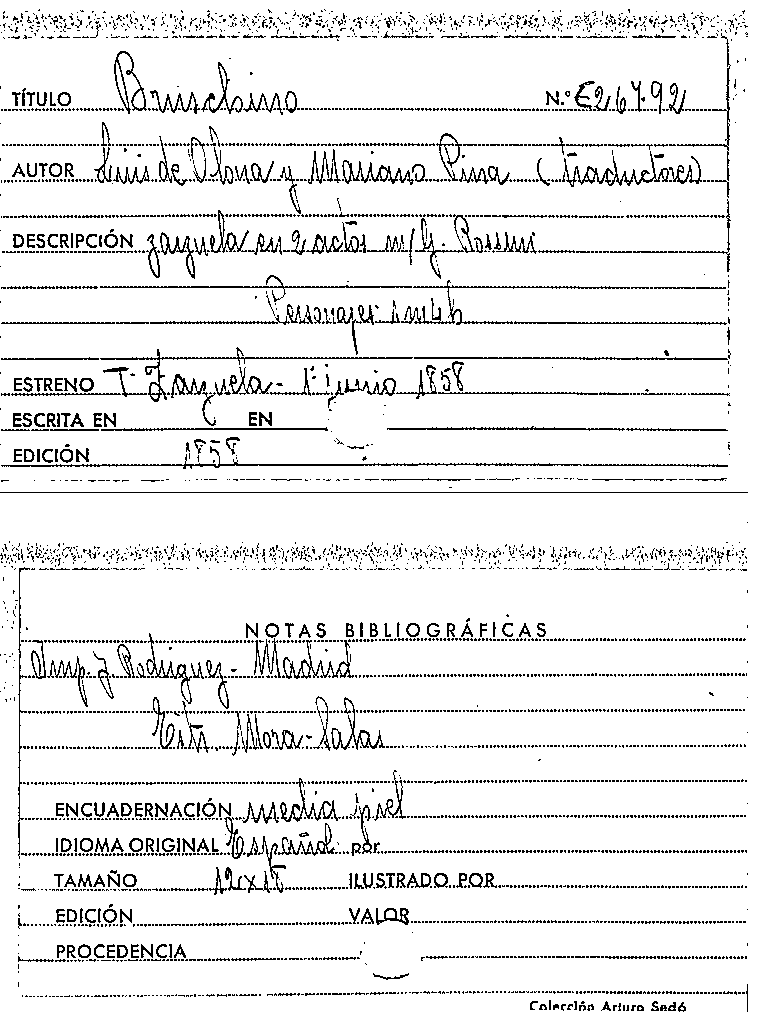 TÍTULO Bruschino N.º E26792
AUTOR Luis de Olona y Mariano Pina (traductores)
DESCRIPCIÓN zarzuela en 2 actos m/ G. Rossini
Personajes 1m4h
ESTRENO T. Zarzuela - 1º junio 1858
ESCRITA EN EN
EDICIÓN 1858
NOTAS BIBLIOGRÁFICAS
Imp. J Rodriguez - Madrid
Mora-Salas
ENCUADERNACIÓN media piel
IDIOMA ORIGINAL Español por
TAMAÑO ILUSTRADO POR
EDICIÓN VALOR
PROCEDENCIA
Colección Arturo Sedó